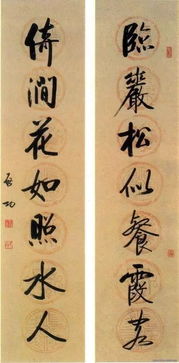 臨巖松似餐霞客
倚澗花如照水人
啟功